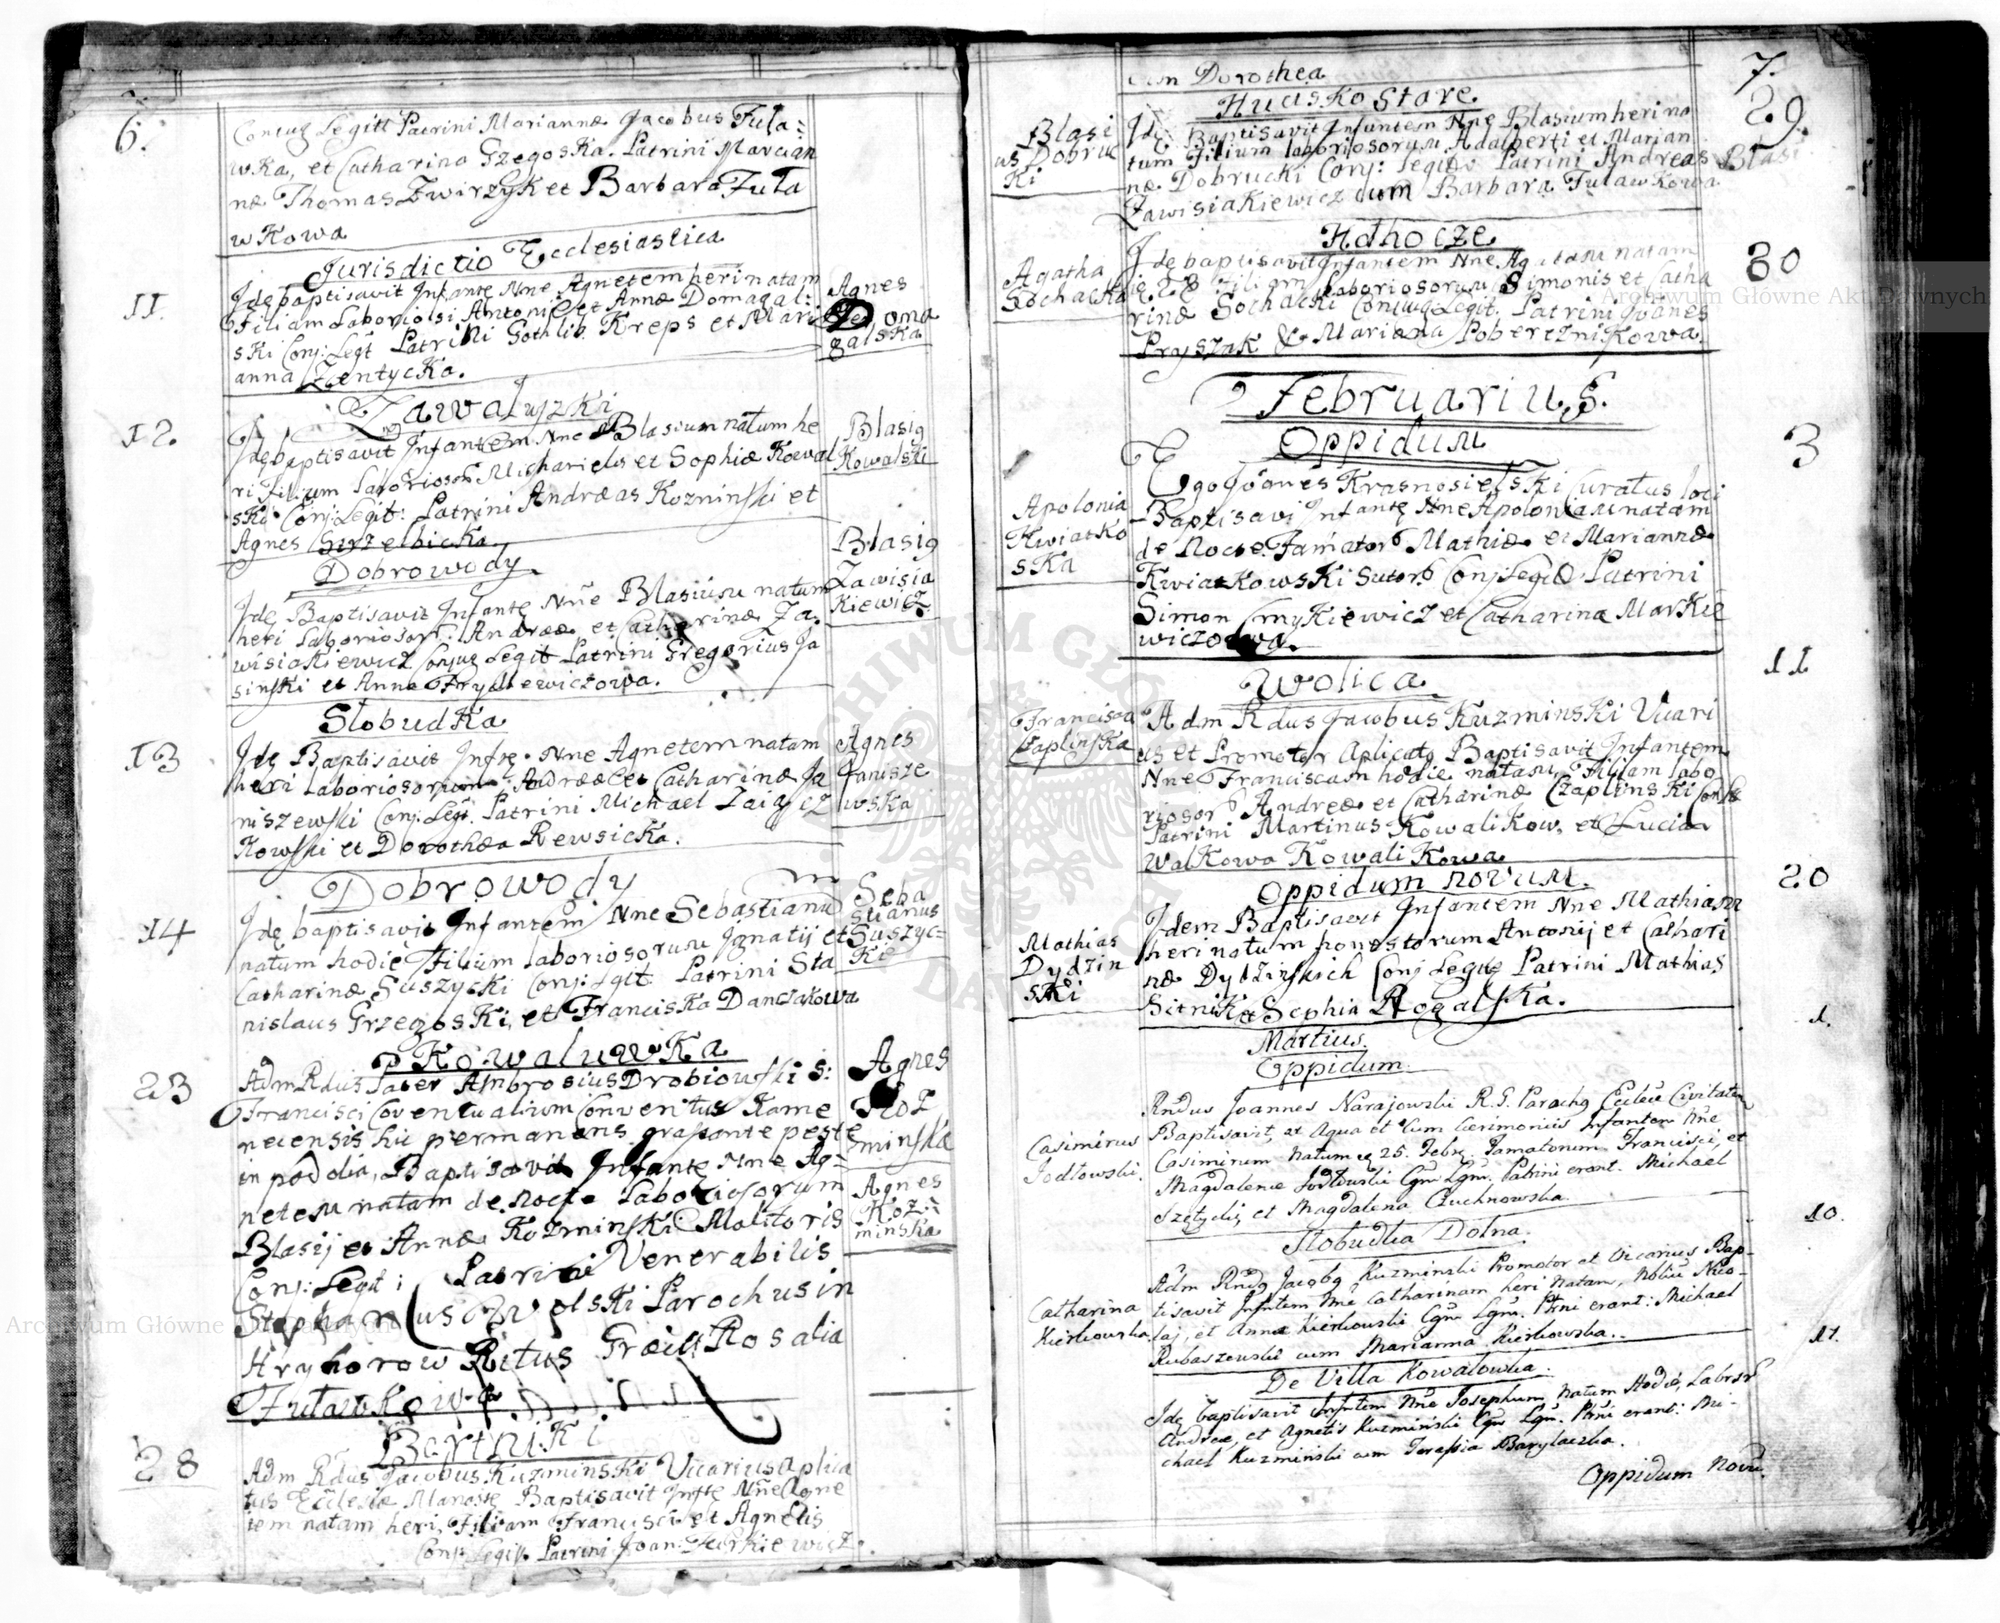 6.
Conjug Legitt Patrini Mariannæ Jacobus Futa=
wKa, et Catharina GzegosKa. Patrini Marcian
næ Thomas ZwirzyK et Barbara Futa
wKowa
Jurisdictio Ecclesiastica
11.
Jdę baptisavit Infantę Nne Agnetem heri natam
Filiam Laboriosi Antonii et Annæ Domagal:
sKi Conj: Legt Patrini Gothlib Kreps et Mari
anna ZentycKa.
Agnes
Doma
galsKa
ZawaluszKi
12.
Jdę baptisavit Infantem Nne Blasium natum he
ri Filium Laborioso Michaelis et Sophiæ Kowal
sKi Conj: Legit: Patrini Andræas Kozninski et
Agnes GurzelbicKa
Blasig
KowalsKi
Dobrowody
Jdę Baptisavit Infantę Nne Blasium natum
heri Laboriosor: Andreæ et Catharinæ Za
wisiaKiewicz Conjug Legit Patrini Gregorius Ja
sinsKi et Anna Frydlewiczowa.
Blasig
Zawisia
Kiewicz
SlobudKa
13
Jdę Baptisavit Infę Nne Agnetem natam
heri Laboriosorum Andreæ et Catharinæ Ja
niszewsKi Conj: Legt: Patrini Michael Zaiącz
KowsKi et Dorothæa RewsicKa.
Agnes
Janisze
wsKa
Dobrowody
14
Jdę baptisavit Infantem Nne Sebastianu
natum hodie Filium Laboriosorum Ignatij et
Catharinæ SuszycKi Conj: Lgit Patrini Sta
nislaus GrzegosKi, et FrancisKa DanczaKowa
Seba
stianus
Suszyc=
Ki
KowaluwKa
23
Adm Rdus Pater Ambrosius DrobiowsKi S:
Francisci Conventualium Conventus Kame
necensis hic permanens grassante peste
in podolia, Baptisavit Infantę Nne Ag=
netem natam de Nocte Laboriosorum
Blasij et Annæ KozminsKi Molitoris
Conj: Legit: Patrini Venerabilis
Stephanus WolsKi Parochus in
Hryhorow Ritus Græci Rosalia
FutawKowa
Agnes
Koz
minsKa
Agnes
Koz=
minsKa
BartniKi
28
Adm Rdus Jacobus KuzminsKi Vicarius aplica
tus Ecclesiæ Manastę Baptisavit Infę Nne Agne
tem natam heri, Filiam Francisci et Agnetis
Conj: Legit: Patrini Joan: TurKiewicz
7.
cum Dorothea
HuctsKo Stare
29
Jdę Baptisavit Infantem Nne Blasium heri na
tum Filium laboriosorum Adalberti et Marian
næ DobrucKi Conj: legit: Patrini Andreas
ZawisiaKiewicz cum Barbara FutawKowa
Blasi
Blasi
us Dobruc
Ki
Hothocze
30
Jdę baptisavit Infantem Nne Agatam natam
Filiam Laboriosorum Simonis et Catha
rinæ SochacKi Conjug Legit. Patrini Joanes
PryszaK & Mariana PobereżniKowa
Agatha
SochacKa
Februarius.
Oppidum
3
Ego Joanes KrasnosielsKi Curatus loci
Baptisavi Infantę Nne Apoloniam natam
de Nocte. Famator Mathiæ et Mariannæ
KwiatKowsKi Sutor Conj: Legit Patrini
Simon CmyKiewicz et Catharina MarKie
wiczowa.
Apolonia
KwiatKo
sKa
Wolica
11
Adm Rdus Jacobus KuzminsKi Vicari
us et Promotor Aplicatg Baptisavit Infantem
Nne Franciscam hodie natam, Filiam labo
riosor Andreæ et Catharinæ CzaplinsKi Conj
Patrini Martinus KowaliKow, et Lucia
WalKowa KowaliKowa
Francisca
CzaplinsKa
Oppidum novum.
20
Jdem Baptisavit Infantem Nne Mathiam
heri natum honestorum Antonij et Cathari
næ DydzinsKich Conj Legit Patrini Mathias
SitniK et Sophia RogalsKa.
Mathias
Dydzin
sKi
Martius.
Oppidum.
1.
Rndus Joannes Narajowski R. G. Parochg Ecclesiæ Civitaten
Baptisavit, et Aqua et Cum Cæremoniis Infantem Nne
Casimirum Natum eg 25. Febr. Famatorum Francisci, et
Magdalenæ Jodłowski Cgm Lgm. Patrini erant: Michael
Szętycki, et Magdalena Czuchnowska.
Casimirus
Jodłowski.
Słobudka Dolna.
10.
Adm Rndg Jacobg Kuzminski Promotor et Vicarius Bap-
tisavit Infntem Nne Catharinam heri Natam, Nobiliũ Nico-
laj, et Annæ Kierkowski Cgm Lgm. Ptrni erant: Michael
Rubaszewski cum Marianna Kierkowska.
Catharina
Kierkowska.
De Villa Kowalowka.
11.
Jdę Baptisavit Infntem Nne Josephum, Natum Hodie, Labrsr
Andreæ, et Agnetis Kuzminski Cgm Lgm. Ptrni erant: Mi-
chael Kuzminski cum Terassia Barylaczka.
Oppidum Novũ.
Archiwum Główne Akt Dawnych